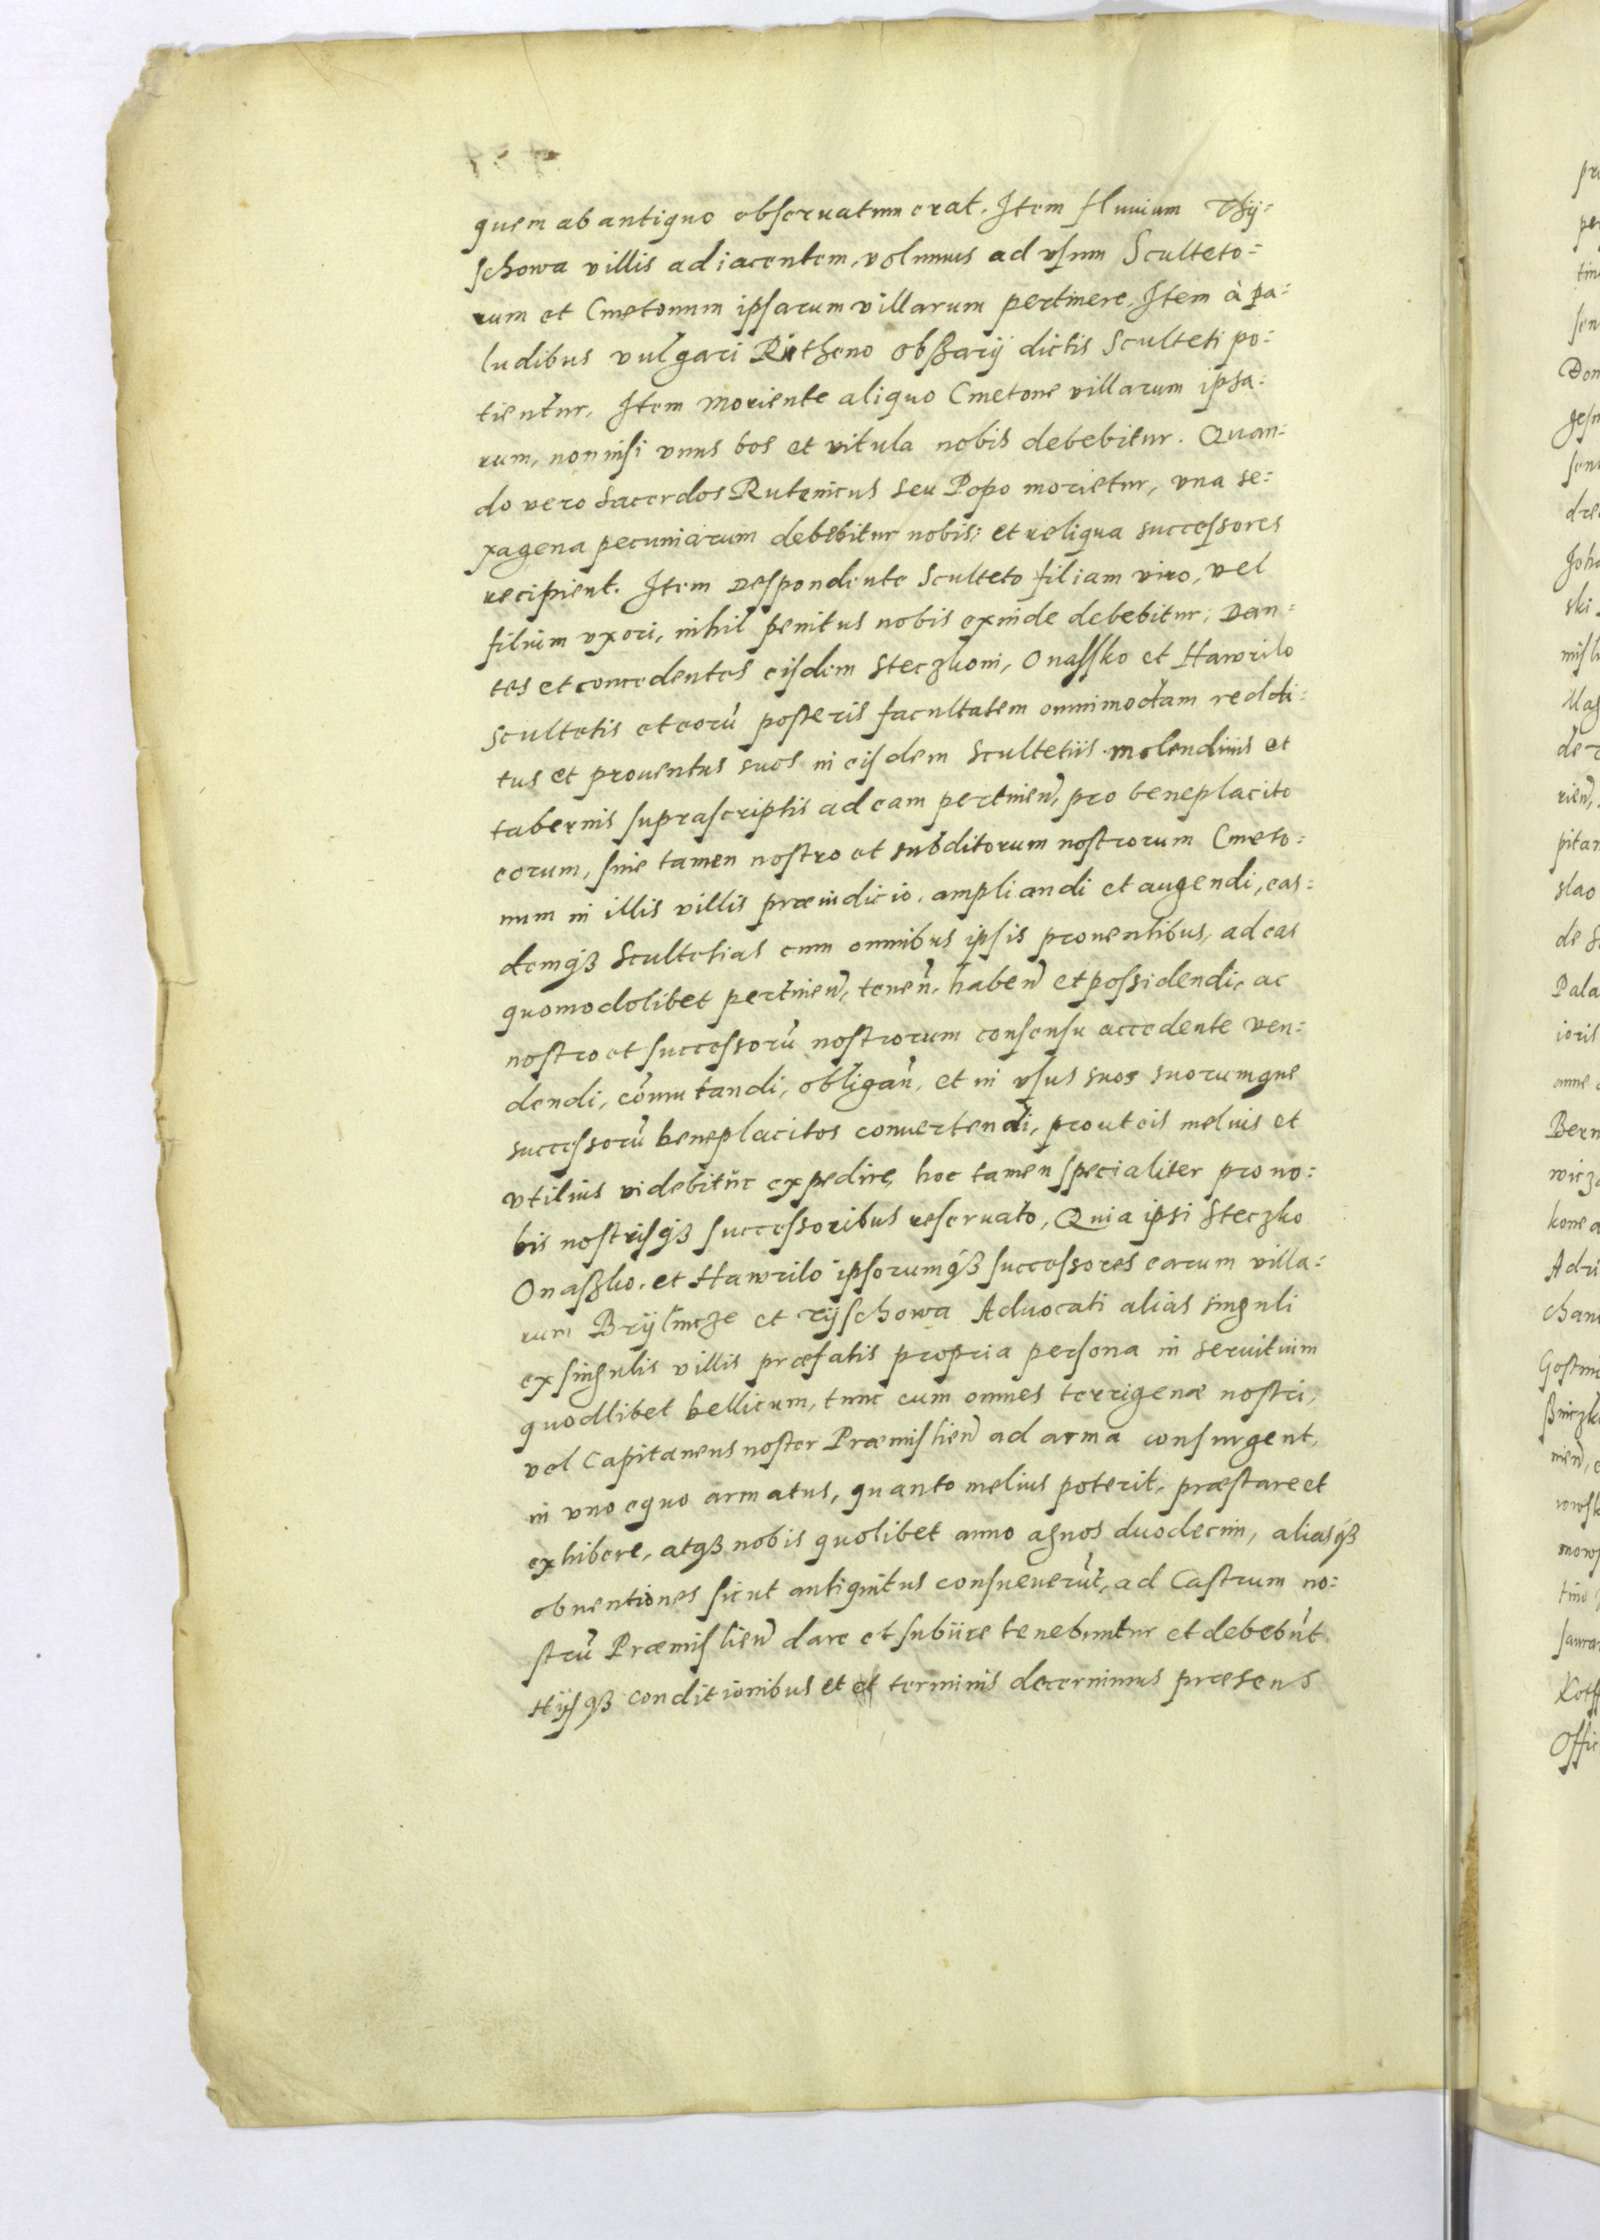 quem ab antiquo obseruatum erat. Item fluuium Thÿ=
schowa villis adiacentem, volumus ad vsum Sculteto=
rum et Cmetonum ipsarum villarum pertinere. Item à pa=
ludibus vulgari Rutheno obßarÿ dictis Sculteti po=
tientur. Item moriente aliquo Cmetone villarum ipsa=
rum, non nisi vnus bos et vitula nobis debebitur. Quan=
do vero Sacerdos Rutenicus seu Popo morietur, vna se=
xagena pecuniarum debebitur nobis: et reliqua successores
recipient. Item Despondente Sculteto filiam viro, vel
filium vxori, nihil penitus nobis exinde debebitur; Dan=
tes et concedentes eisdem Steczkoni, Onassko et Hawrilo
scultetis et eorũ posteris facultatem omnimodam reddi=
tus et prouentus suos in eisdem Scultetiis molendinis et
tabernis suprascriptis ad eam pertinen̄, pro beneplacito
eorum, sine tamen nostro et subditorum nostrorum Cmeto=
num in illis villis præiudicio, ampliandi et augendi, eas=
demqȝ Scultetias cum omnibus ipsis prouentibus, ad eas
quomodolibet pertinen̄, tenen̄, haben̄ et possidendi, ac
nostro et successorũ nostrorum consensu accedente ven=
dendi, cõmutandi, obligan̄, et in vsus suos suorumque
successorũ beneplacitos conuertendi, prout eis melius et
vtilius videbitur expedire, hoc tamen specialiter pro no=
bis nostrisqȝ successoribus reseruato, Quia ipsi Steczko
Onaßko, et Hawrilo ipsorumqȝ successores earum villa=
rum Brÿlincze et Tÿschowa Aduocati alias singuli
ex singulis villis præfatis propria persona in seruitium
quodlibet bellicum, tunc cum omnes terrigenæ nostri,
vel Capitaneus noster Præmislien̄ ad arma consurgent,
in vno equo armatus, quanto melius poterit, præstare et
exhibere, atqȝ nobis quolibet anno agnos duodecim, aliasqȝ
obuentiones sicut antiquitus consueuerũt, ad Castrum no=
strũ Præmislien̄ dare et subiire tenebuntur et debebũt
Hÿsqȝ conditionibus et et terminis decernimus præsens